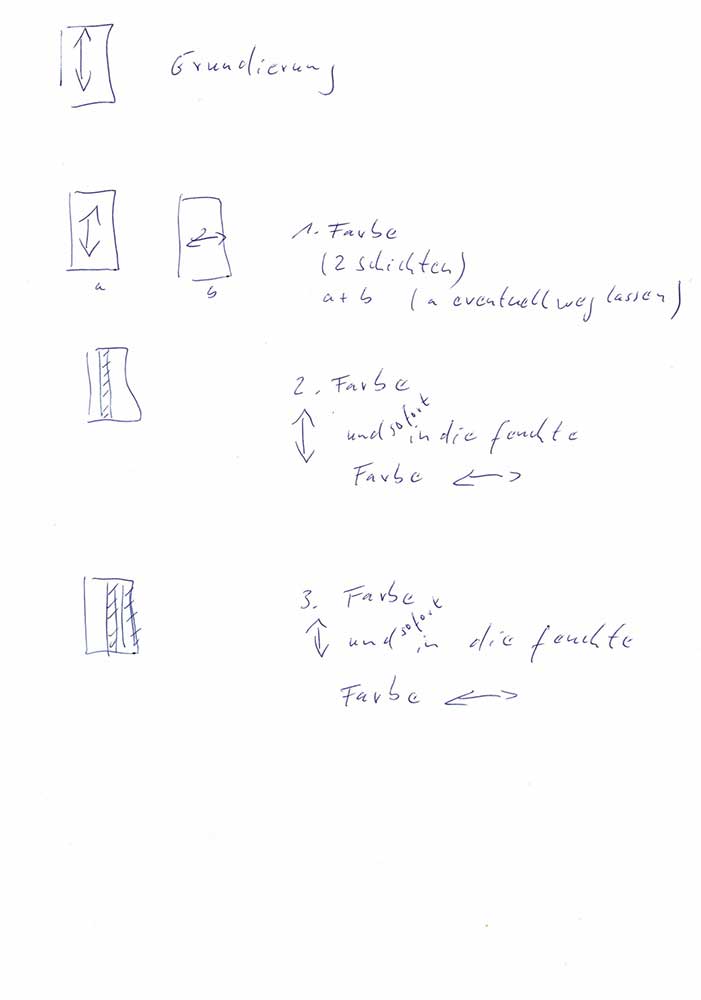 Grundierung
a
b
1. Farbe
(2 schichten)
a + b (a eventuell weg lassen)
2. Farbe
und sofort in die feuchte
Farbe
3. Farbe
und sofort in die feuchte
Farbe